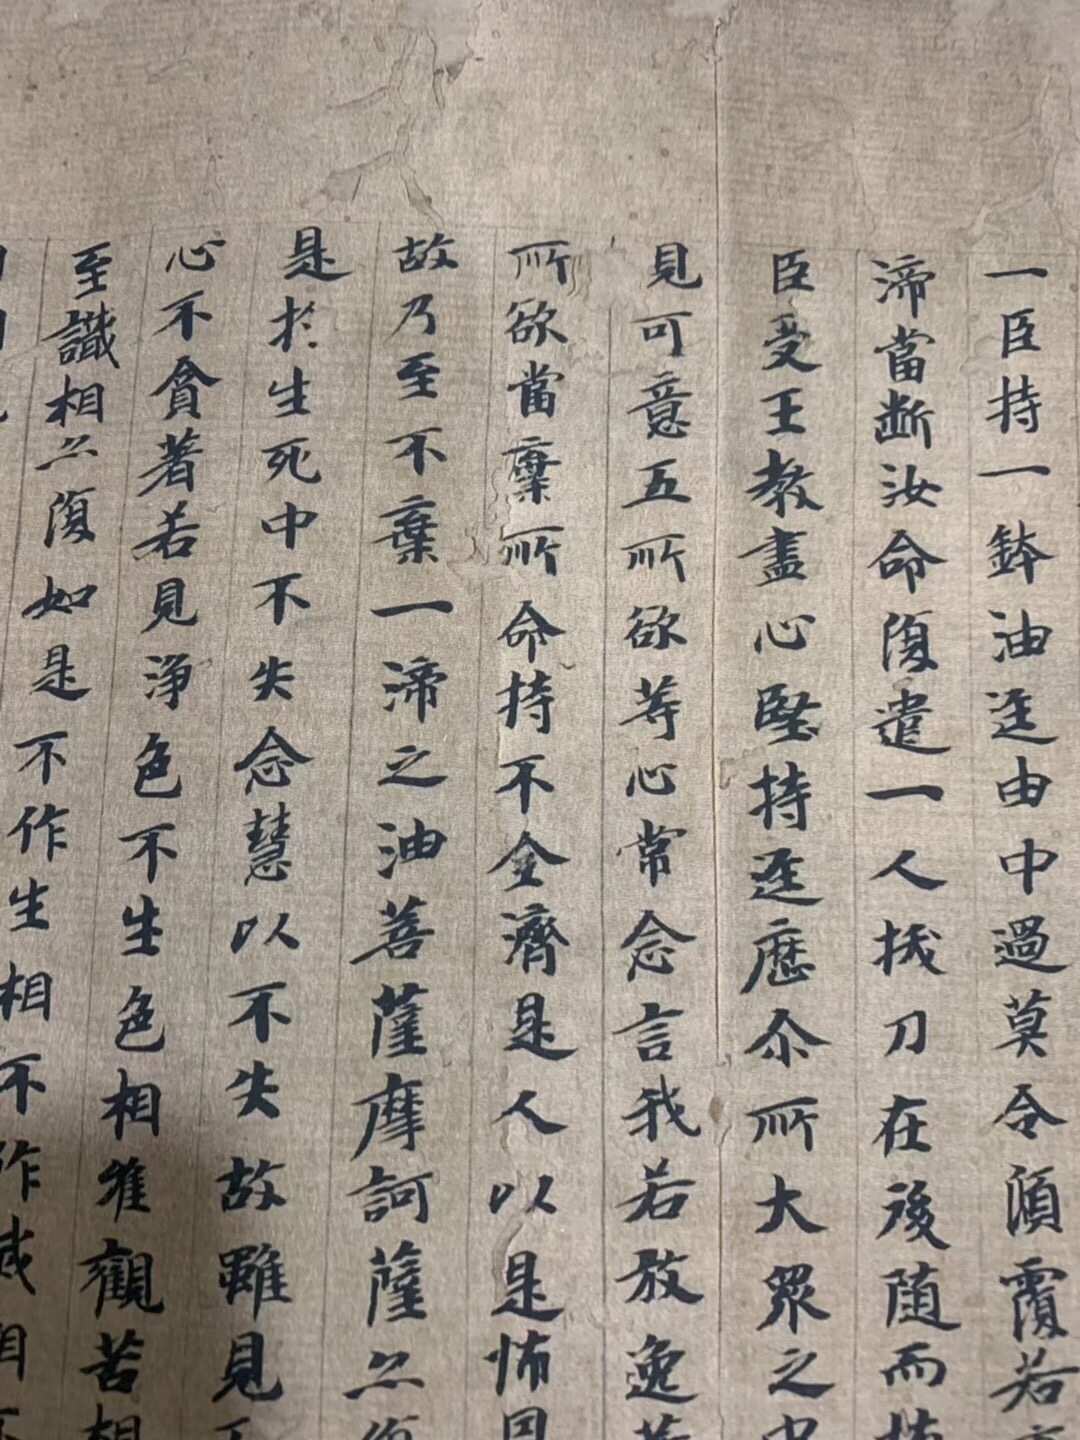 一臣持一鉢油逕由中過莫令湏覆若
渧當断汝命復遣一人拔刀在後随而
臣受王教盡心堅持逕歷尒所大眾之中
見可意五所欲等心常念言我若放逸著
所欲當棄所命持不全濟是人以是怖因
故乃至不棄一渧之油菩薩摩訶薩亦復
是於生死中不失念慧以不失故雖見
心不貪著若見淨色不生色相唯觀苦相
至識相亦復如是不作生相不作滅相